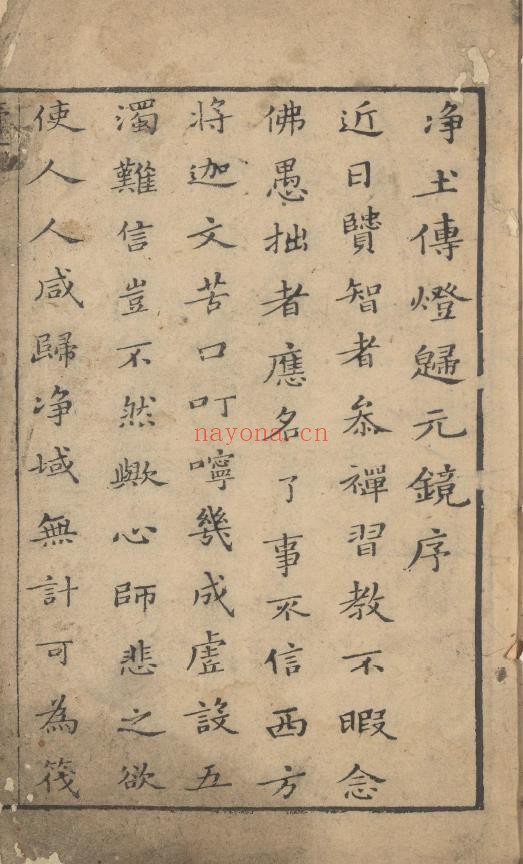 净土傳燈歸元鏡序
近日賢智者叅禪習教不暇念
佛愚拙者應名了事不信西方
将迦文苦口叮嚀幾成虛設五
濁難信豈不然歟心師悲之欲
使人人咸歸净域無計可為筏
nayona.cn